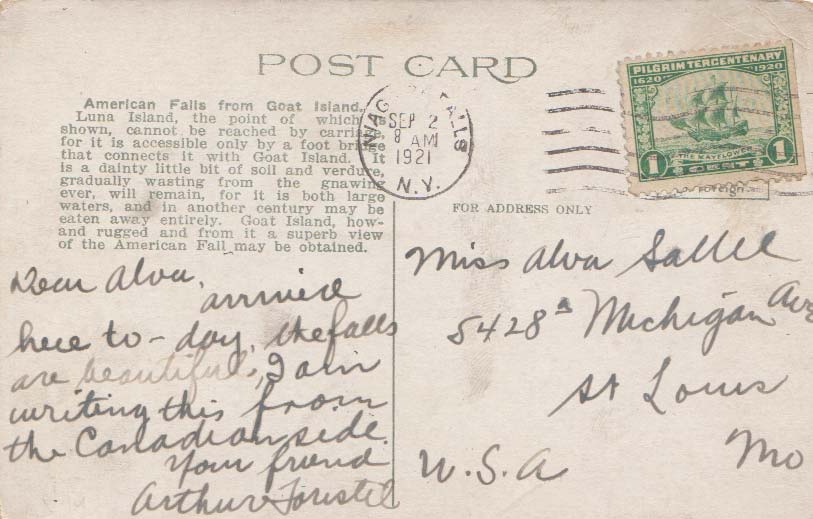 POST CARD
American Falls from Goat Island.
Luna Island, the point of which is
shown, cannot be reached by carriage,
for it is accessible only by a foot bridge
that connects it with Goat Island. It
is a dainty little bit of soil and verdure,
gradually wasting from the gnawing
ever, will remain, for it is both large
waters, and in another century may be
eaten away entirely. Goat Island, how-
and rugged and from it a superb view
of the American Fall may be obtained.
FALLS
SEP 2
8 AM
1921
N.Y.
PILGRIM TERCENTENARY
1620 1920
THE MAYFLOWER
1 CENT 1
Foreign
FOR ADDRESS ONLY
Dear Alva,
arrived
here to-day, the falls
are beautiful, I am
writing this from
the Canadian side.
Your friend
Arthur Foristel
Miss Alva Sallee
5428a Michigan Ave
St Louis
Mo
U.S.A